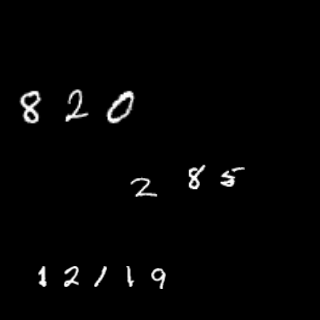 820
285
12/19